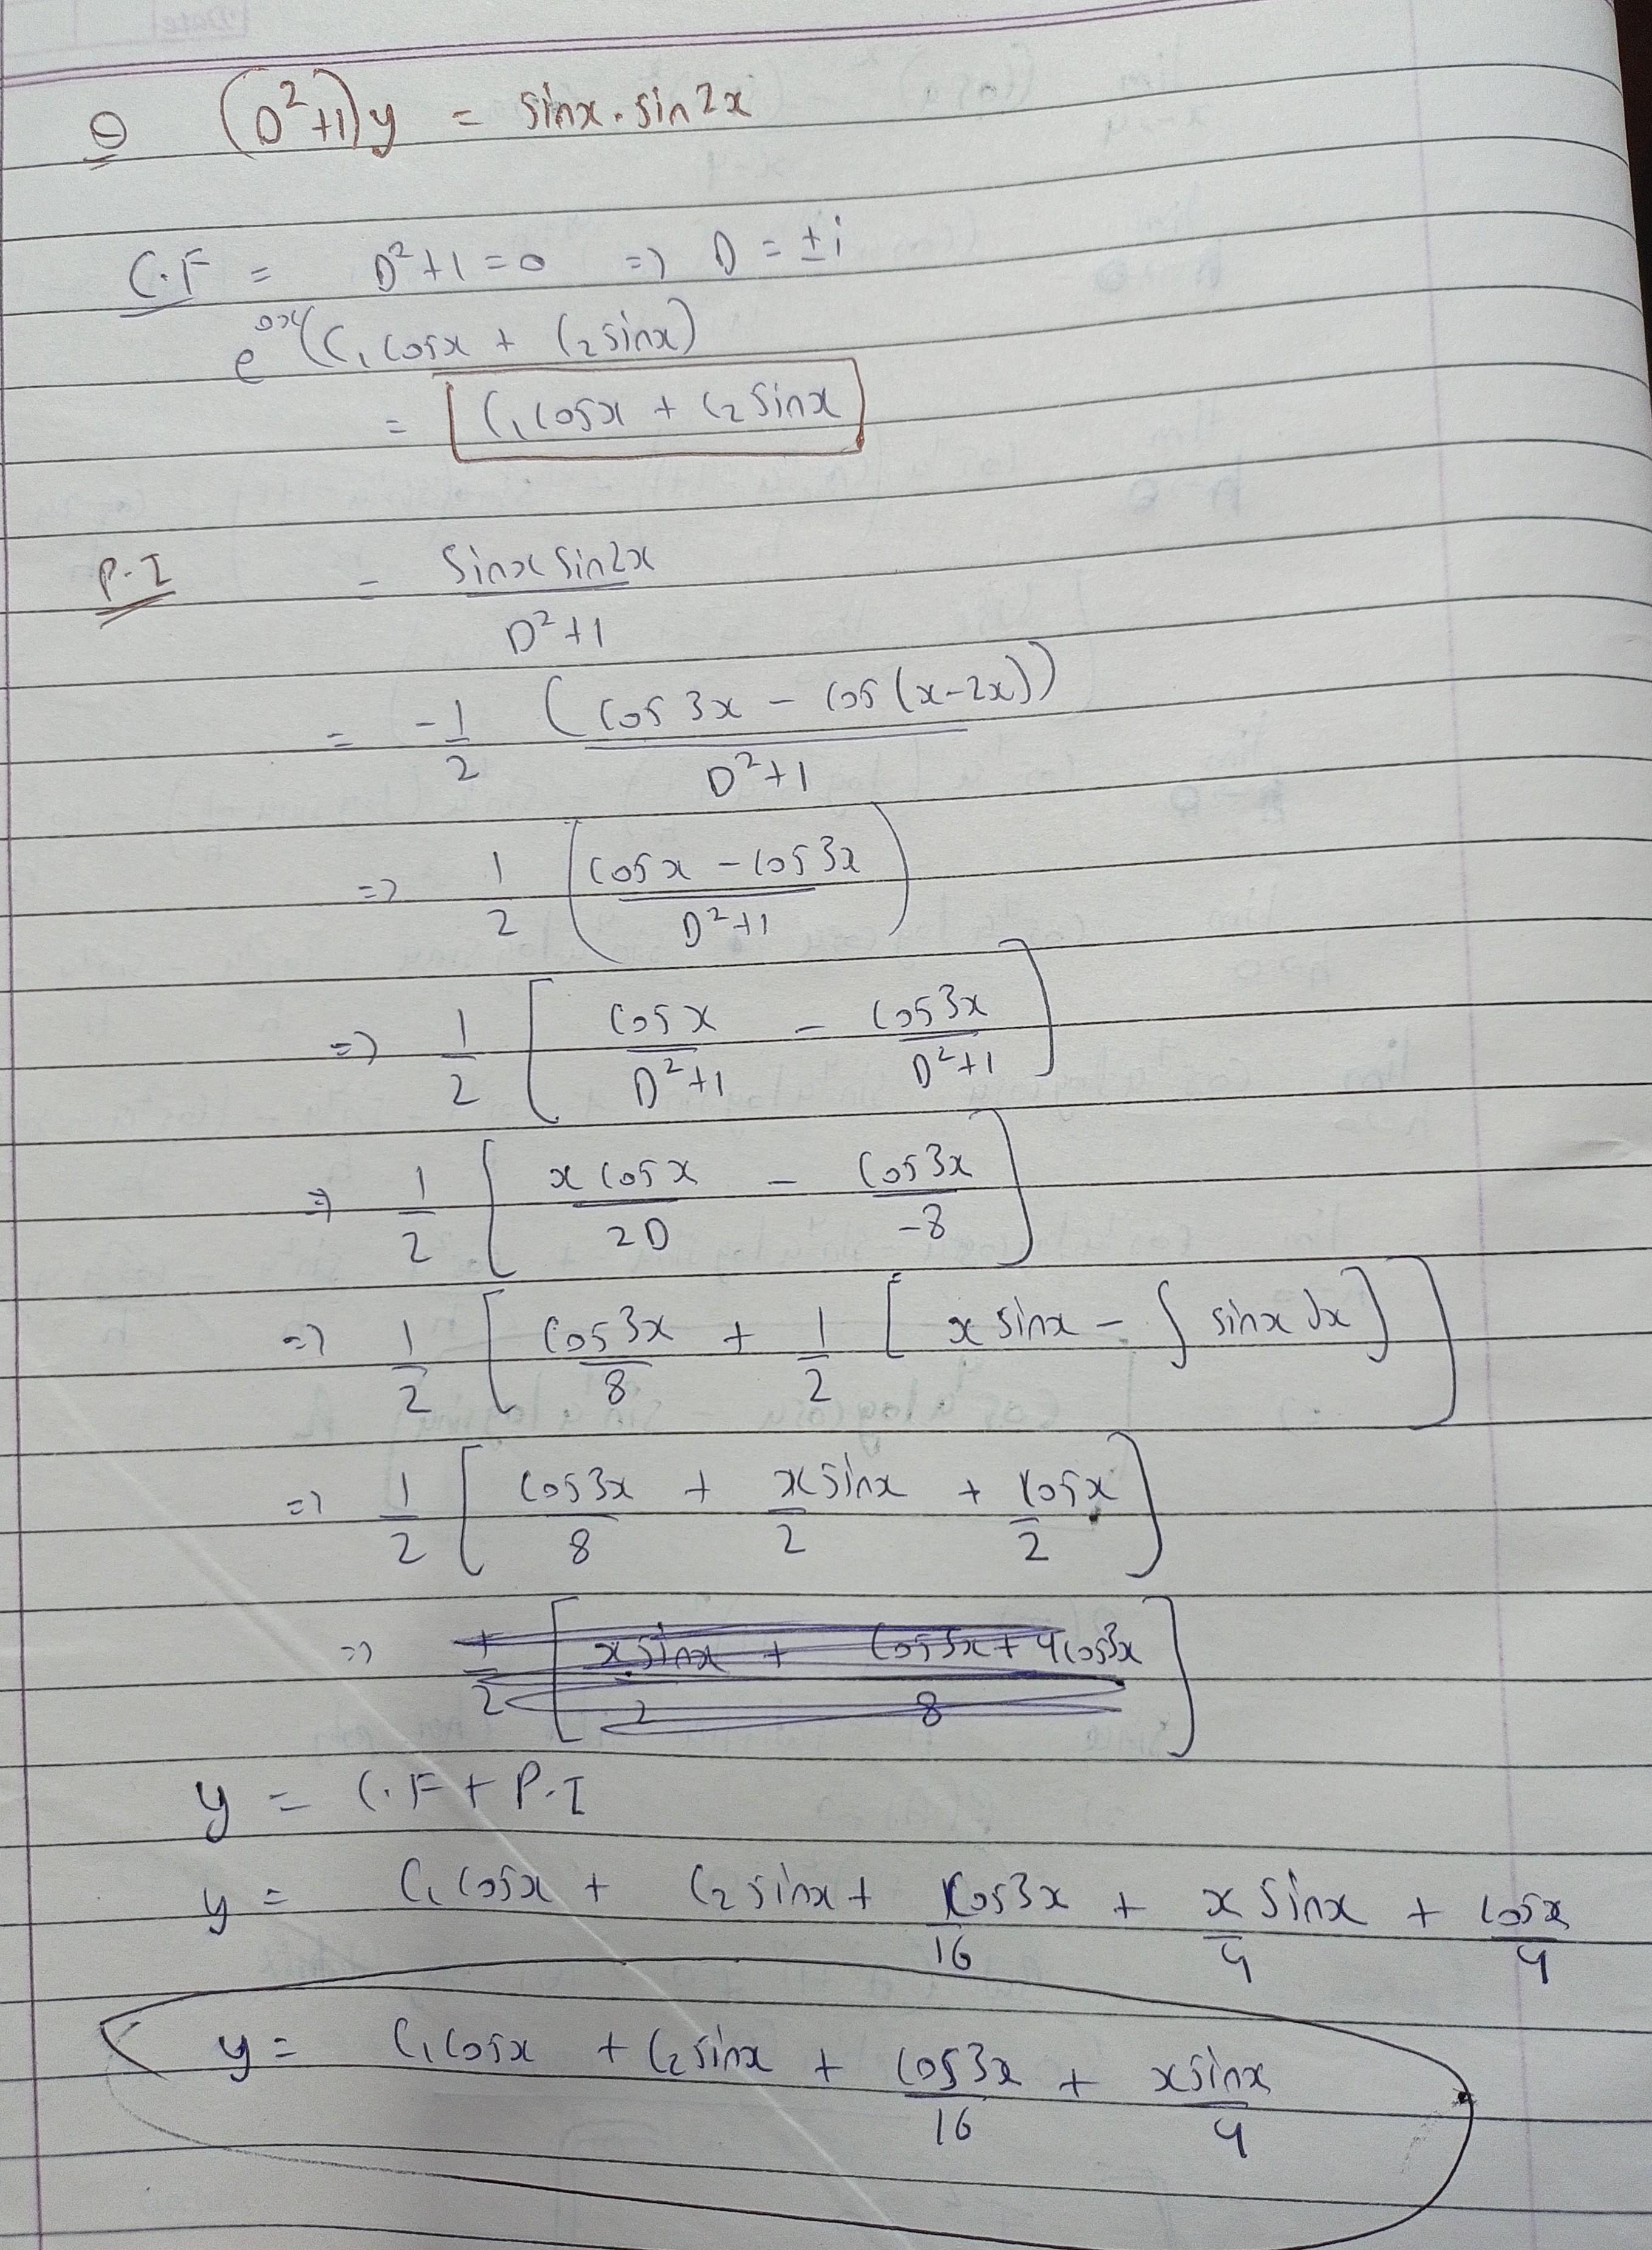 Q (D²+1)y = sinx. sin2x
C.F = D²+1=0 => D = ±i
e^0x(C₁ cosx + C₂ sinx)
= C₁ cosx + C₂ sinx
P.I = sinx sin2x / D²+1
= -1/2 (cos 3x - cos (x-2x)) / D²+1
=> 1/2 (cosx - cos3x / D²+1)
=> 1/2 [cosx / D²+1 - cos3x / D²+1]
=> 1/2 [x cosx / 2D - cos3x / -8]
=> 1/2 [cos3x / 8 + 1/2 [x sinx - ∫ sinx dx]]
=> 1/2 [cos3x / 8 + x sinx / 2 + cosx / 2]
=>
y = C.F + P.I
y = C₁ cosx + C₂ sinx + cos3x / 16 + x sinx / 4 + cosx / 4
y = C₁ cosx + C₂ sinx + cos3x / 16 + x sinx / 4